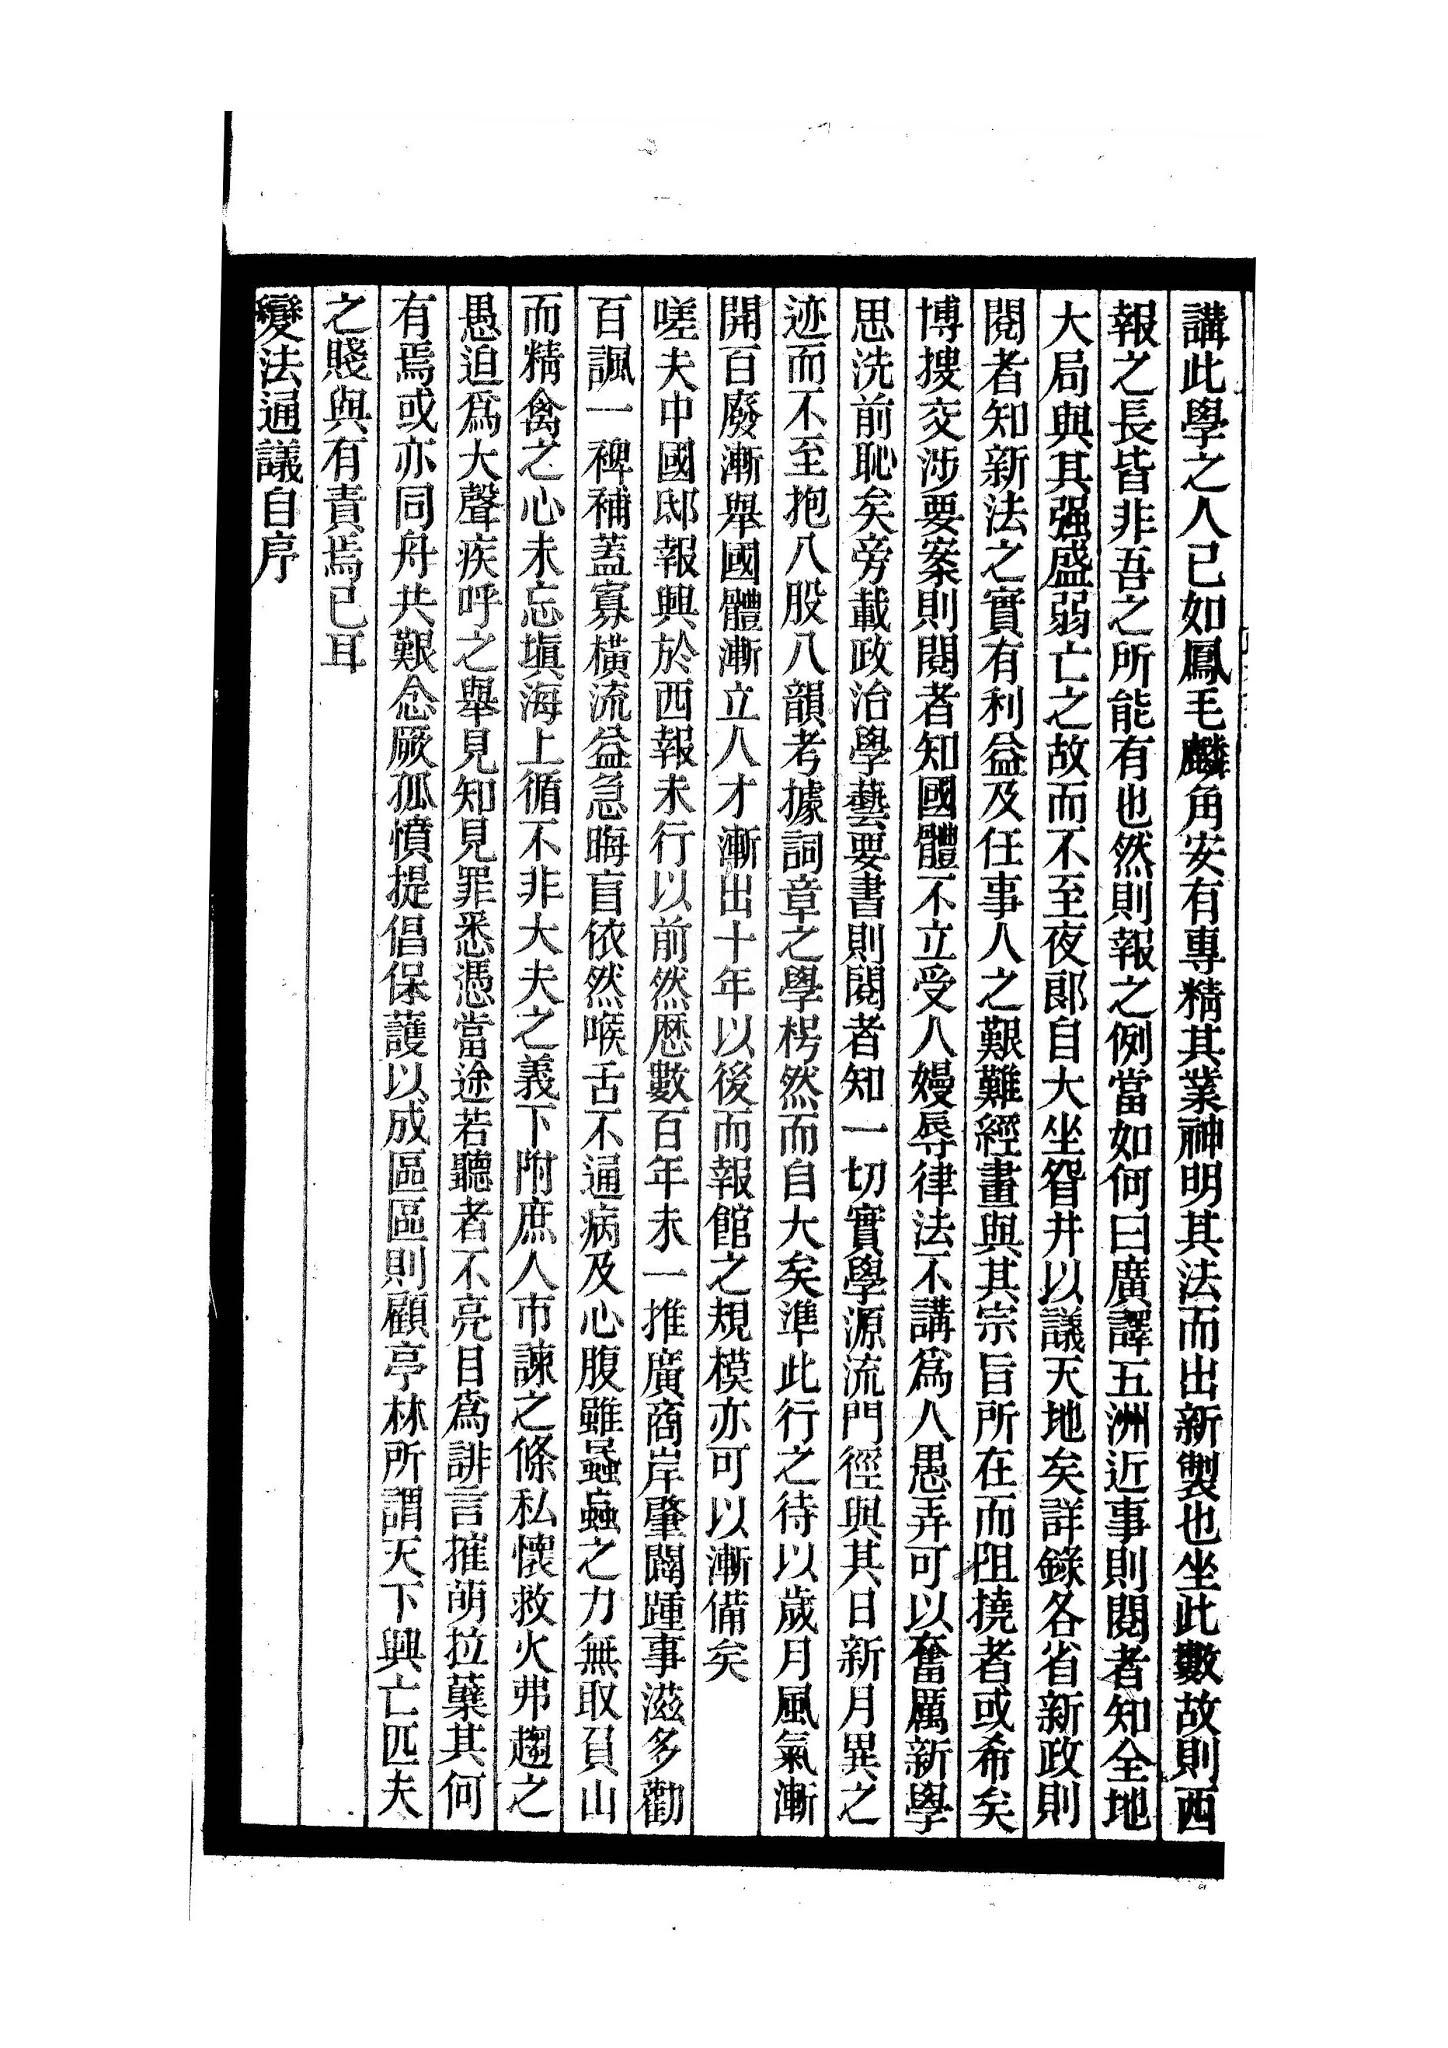 講此學之人已如鳳毛麟角安有專精其業神明其法而出新製也坐此數故則西
報之長皆非吾之所能有也然則報之例當如何曰廣譯五洲近事則閱者知全地
大局與其强盛弱亡之故而不至夜郎自大坐眢井以議天地矣詳錄各省新政則
閱者知新法之實有利益及任事人之艱難經畫與其宗旨所在而阻撓者或希矣
博搜交涉要案則閱者知國體不立受人嫚辱律法不講爲人愚弄可以奮厲新學
思洗前恥矣旁載政治學藝要書則閱者知一切實學源流門徑與其日新月異之
迹而不至抱八股八韻考據詞章之學枵然而自大矣準此行之待以歲月風氣漸
開百廢漸舉國體漸立人才漸出十年以後而報館之規模亦可以漸備矣
嗟夫中國邸報興於西報未行以前然歷數百年未一推廣商岸肇闢踵事滋多勸
百諷一裨補蓋寡橫流益急晦盲依然喉舌不通病及心腹雖蟁蝱之力無取負山
而精禽之心未忘塡海上循不非大夫之義下附庶人市諫之條私懷救火弗趨之
愚迫爲大聲疾呼之舉見知見罪悉憑當途若聽者不亮目爲誹言摧萌拉蘖其何
有焉或亦同舟共艱念厥孤憤提倡保護以成區區則顧亭林所謂天下興亡匹夫
之賤與有責焉已耳
變法通議自序